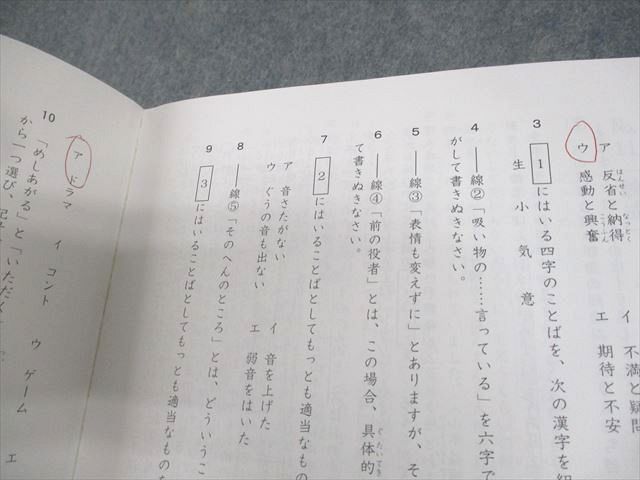 ア 反省と納得 イ 不満と疑問
はんせい なっとく
ウ 感動と興奮 エ 期待と不安
こうふん
3 1 にはいる四字のことばを、次の漢字を
生 小 気 意
4 ――線②「吸い物の……言っている」を六字で
がして書きぬきなさい。
5 ――線③「表情も変えずに」とありますが、そ
6 ――線④「前の役者」とは、この場合、具体的
ぐたいてき
て書きぬきなさい。
7 2 にはいることばとしてもっとも適当なもの
ア 音さたがない イ 音を上げた
ウ ぐうの音も出ない エ 弱音をはいた
8 ――線⑤「そのへんのところ」とは、どういうこ
9 3 にはいることばとしてもっとも適当なものを
ア ドラマ イ コント ウ ゲーム エ
10 「めしあがる」と「いただく」
から一つ選び、記